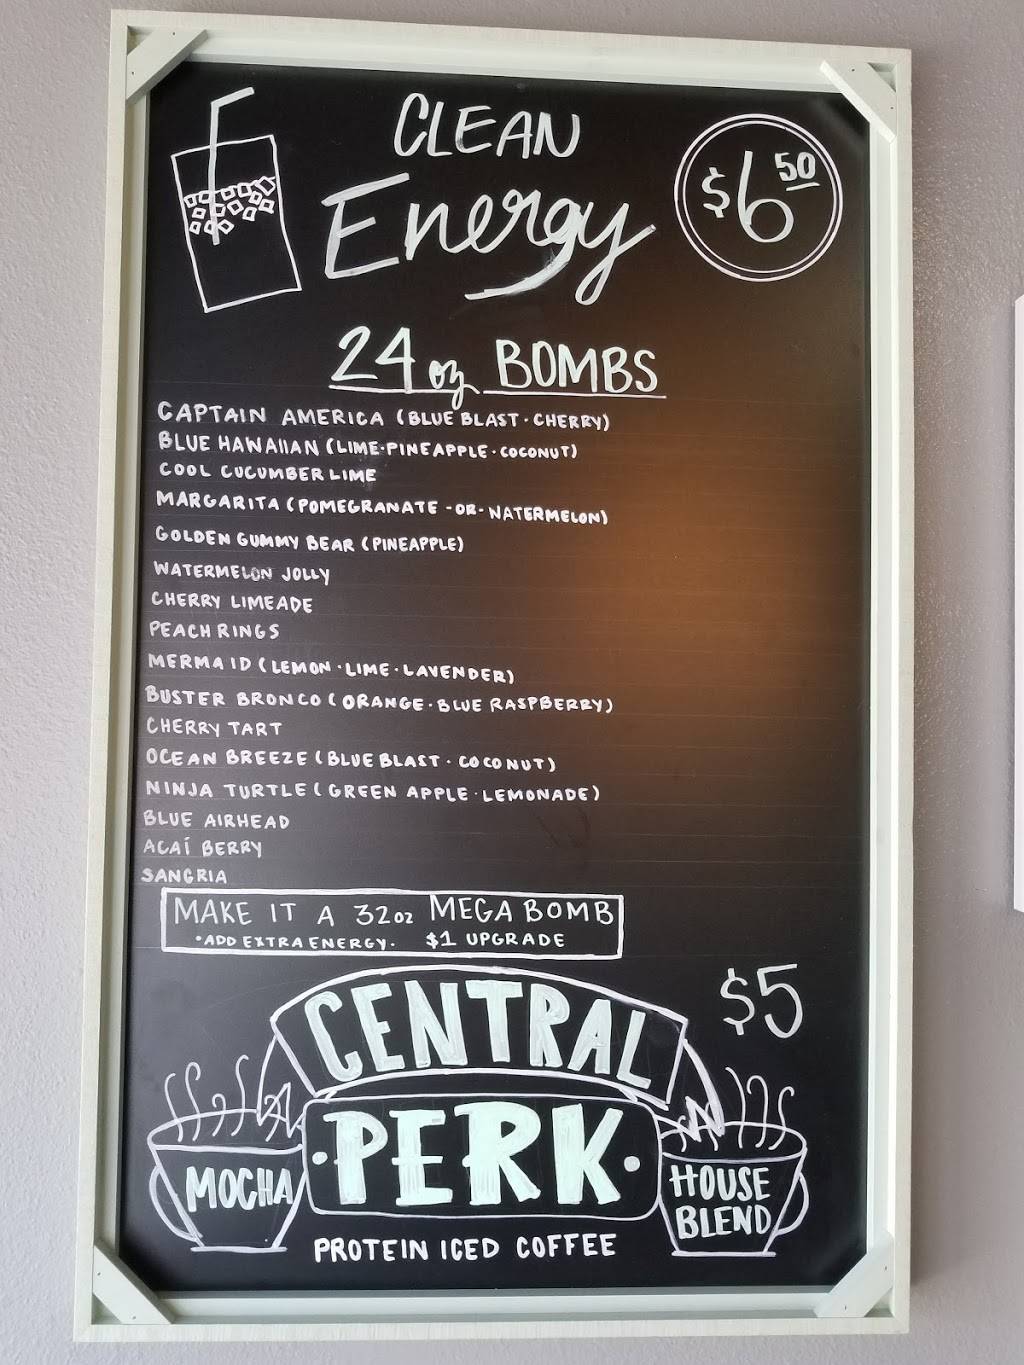 CLEAN
Energy
$6 50
24 oz BOMBS
CAPTAIN AMERICA (BLUE BLAST · CHERRY)
BLUE HAWAIIAN (LIME · PINEAPPLE · COCONUT)
COOL CUCUMBER LIME
MARGARITA (POMEGRANATE -OR- WATERMELON)
GOLDEN GUMMY BEAR (PINEAPPLE)
WATERMELON JOLLY
CHERRY LIMEADE
PEACH RINGS
MERMAID (LEMON · LIME · LAVENDER)
BUSTER BRONCO (ORANGE · BLUE RASPBERRY)
CHERRY TART
OCEAN BREEZE (BLUE BLAST · COCONUT)
NINJA TURTLE (GREEN APPLE · LEMONADE)
BLUE AIRHEAD
ACAÍ BERRY
SANGRIA
MAKE IT A 32oz MEGA BOMB
· ADD EXTRA ENERGY · $1 UPGRADE
$5
CENTRAL
· PERK ·
MOCHA
HOUSE
BLEND
PROTEIN ICED COFFEE